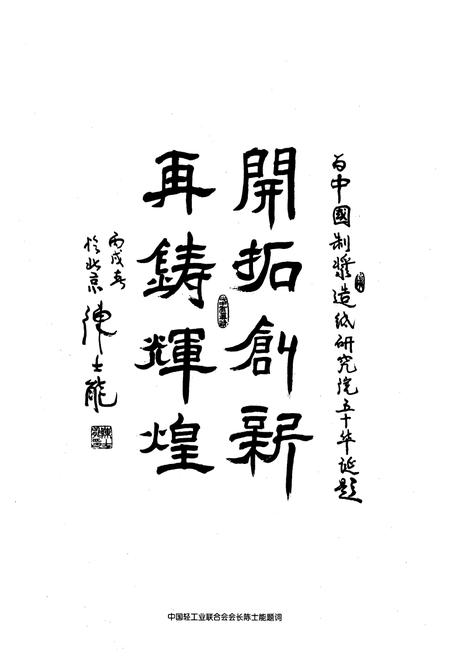 为中國制漿造纸研究院五十华诞题
開拓創新
再鑄輝煌
丙戌春
於北京 陳士能
中国轻工业联合会会长陈士能题词